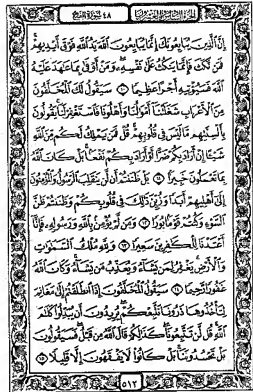 ٤٨ سورة الفتح
إِنَّ ٱلَّذِينَ يُبَايِعُونَكَ إِنَّمَا يُبَايِعُونَ ٱللَّهَ يَدُ ٱللَّهِ فَوْقَ أَيْدِيهِمْ
فَمَن نَّكَثَ فَإِنَّمَا يَنكُثُ عَلَىٰ نَفْسِهِۦ وَمَنْ أَوْفَىٰ بِمَا عَٰهَدَ عَلَيْهُ
ٱللَّهَ فَسَيُؤْتِيهِ أَجْرًا عَظِيمًا ١٠ سَيَقُولُ لَكَ ٱلْمُخَلَّفُونَ
مِنَ ٱلْأَعْرَابِ شَغَلَتْنَآ أَمْوَٰلُنَا وَأَهْلُونَا فَٱسْتَغْفِرْ لَنَا يَقُولُونَ
بِأَلْسِنَتِهِم مَّا لَيْسَ فِى قُلُوبِهِمْ قُلْ فَمَن يَمْلِكُ لَكُم مِّنَ ٱللَّهِ
شَيْـًٔا إِنْ أَرَادَ بِكُمْ ضَرًّا أَوْ أَرَادَ بِكُمْ نَفْعًۢا بَلْ كَانَ ٱللَّهُ
بِمَا تَعْمَلُونَ خَبِيرًۢا ١١ بَلْ ظَنَنتُمْ أَن لَّن يَنقَلِبَ ٱلرَّسُولُ وَٱلْمُؤْمِنُونَ
إِلَىٰٓ أَهْلِيهِمْ أَبَدًا وَزُيِّنَ ذَٰلِكَ فِى قُلُوبِكُمْ وَظَنَنتُمْ ظَنَّ
ٱلسَّوْءِ وَكُنتُمْ قَوْمًۢا بُورًا ١٢ وَمَن لَّمْ يُؤْمِنۢ بِٱللَّهِ وَرَسُولِهِۦ فَإِنَّآ
أَعْتَدْنَا لِلْكَٰفِرِينَ سَعِيرًا ١٣ وَلِلَّهِ مُلْكُ ٱلسَّمَٰوَٰتِ
وَٱلْأَرْضِ يَغْفِرُ لِمَن يَشَآءُ وَيُعَذِّبُ مَن يَشَآءُ وَكَانَ ٱللَّهُ
غَفُورًا رَّحِيمًا ١٤ سَيَقُولُ ٱلْمُخَلَّفُونَ إِذَا ٱنطَلَقْتُمْ إِلَىٰ مَغَانِمَ
لِتَأْخُذُوهَا ذَرُونَا نَتَّبِعْكُمْ يُرِيدُونَ أَن يُبَدِّلُوا۟ كَلَٰمَ
ٱللَّهِ قُل لَّن تَتَّبِعُونَا كَذَٰلِكُمْ قَالَ ٱللَّهُ مِن قَبْلُ فَسَيَقُولُونَ
بَلْ تَحْسُدُونَنَا بَلْ كَانُوا۟ لَا يَفْقَهُونَ إِلَّا قَلِيلًا ١٥
٥١٢